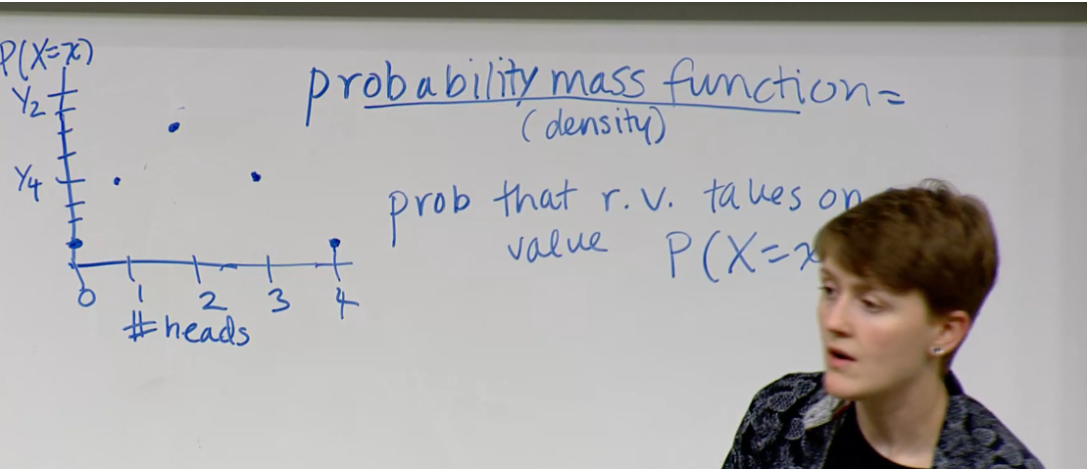 P(X=x)
1/2
1/4
0 1 2 3 4
#heads
probability mass function=
(density)
prob that r.v. takes on
value P(X=x